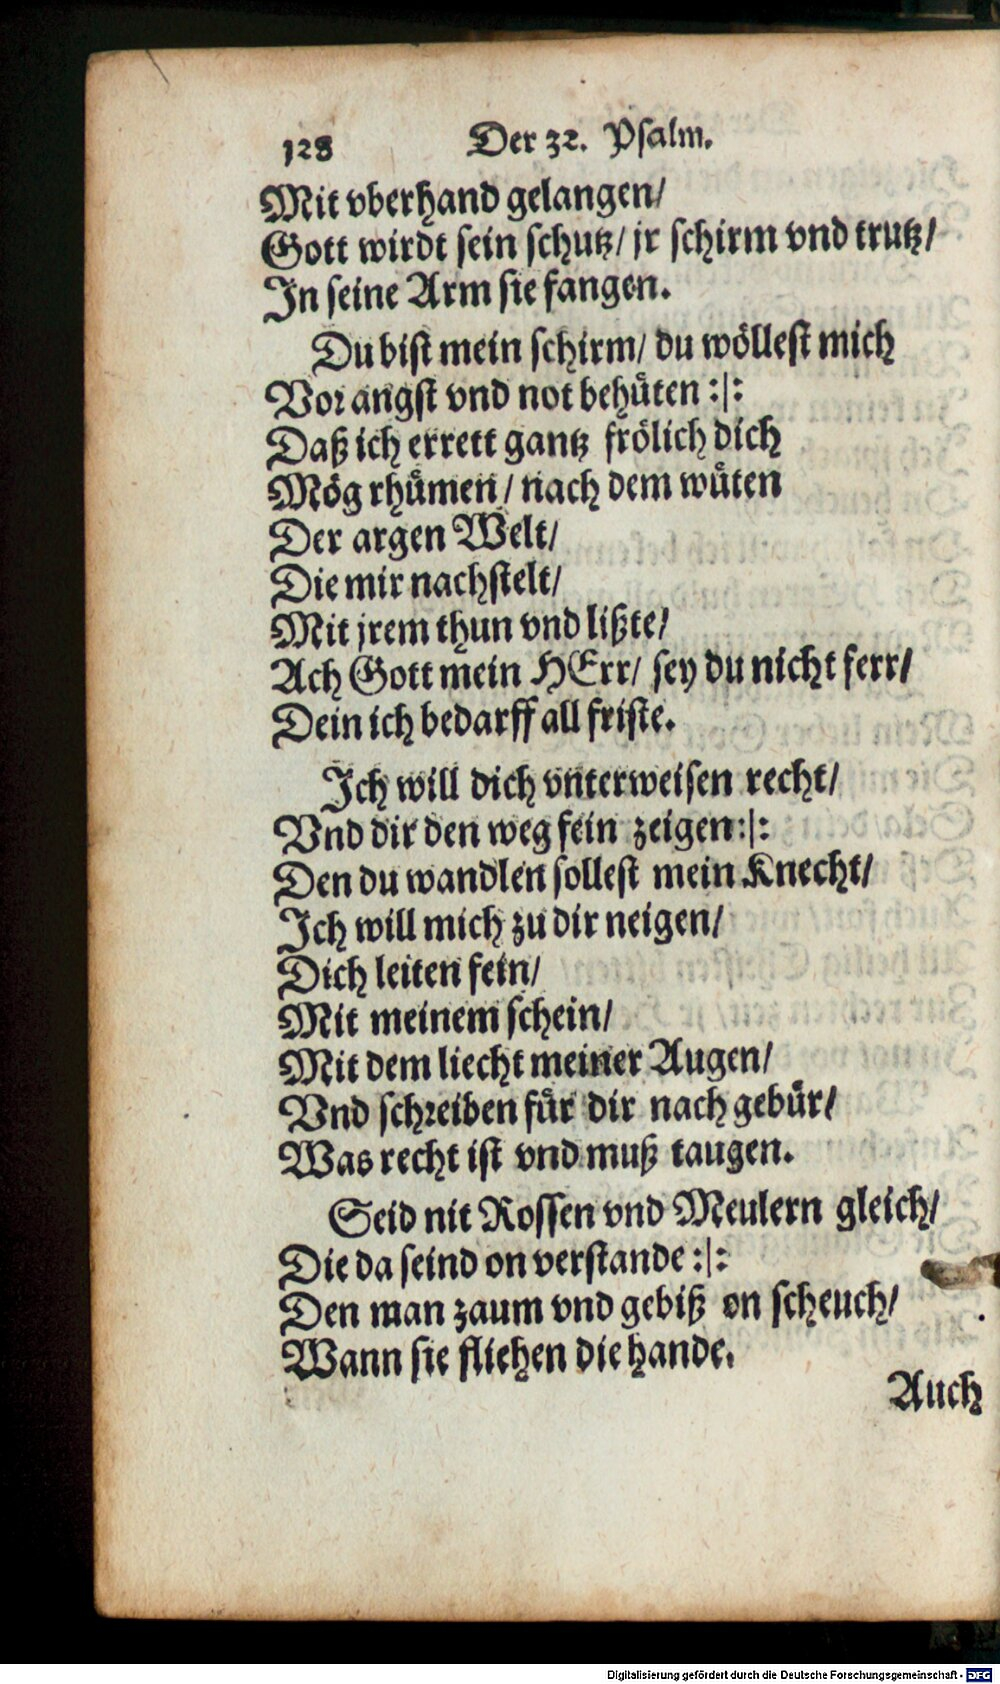 128 Der 32. Psalm.
Mit vberhand gelangen/
Gott wirdt sein schutz/ jr schirm vnd trutz/
In seine Arm sie fangen.
Du bist mein schirm/ du wöllest mich
Vor angst vnd not behüten :|:
Daß ich errett gantz frölich dich
Mög rhümen/ nach dem wüten
Der argen Welt/
Die mir nachstelt/
Mit jrem thun vnd lißte/
Ach Gott mein HErr/ sey du nicht ferr/
Dein ich bedarff all friste.
Ich will dich vnterweisen recht/
Vnd dir den weg fein zeigen:|:
Den du wandlen sollest mein Knecht/
Ich will mich zu dir neigen/
Dich leiten fein/
Mit meinem schein/
Mit dem liecht meiner Augen/
Vnd schreiben für dir nach gebür/
Was recht ist vnd muß taugen.
Seid nit Rossen vnd Meulern gleich/
Die da seind on verstande :|:
Den man zaum vnd gebiß on scheuch/
Wann sie fliehen die hande.
Auch
Digitalisierung gefördert durch die Deutsche Forschungsgemeinschaft - DFG